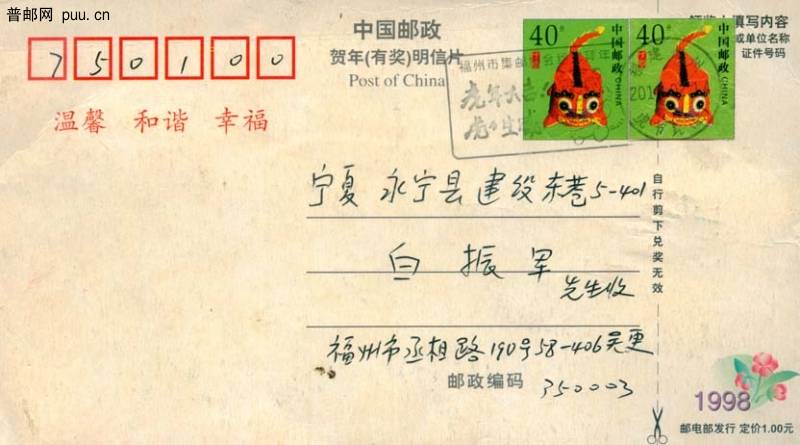 普邮网 puu.cn
中国邮政
贺年(有奖)明信片
Post of China
750100
温馨 和谐 幸福
40分
中国邮政
CHINA
40分
中国邮政
CHINA
填写内容
或单位名称
证件号码
福州市集邮
虎年大吉
宁夏 永宁县 建设东巷5-401
白振军
先生收
福州市丞相路190号58-406吴更
邮政编码 350003
自行剪下兑奖无效
1998
邮电部发行 定价1.00元